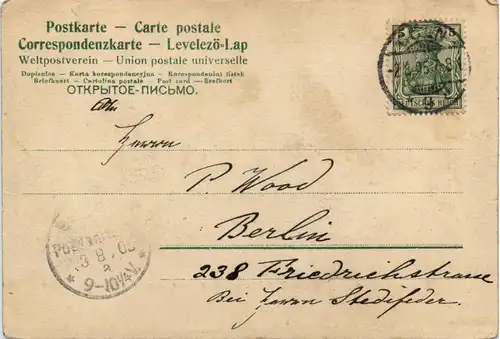 Postkarte — Carte postale
Correspondenzkarte — Levelező-Lap
Weltpostverein — Union postale universelle
Dopisnice — Karta korespondencyjna — Korespondenční lístek
Briefkaart — Cartolina postale — Post card — Brefkort
ОТКРЫТОЕ-ПИСЬМО.
Herrn
P. Wood
Berlin
238 Friedrichstrasse
Bei Herrn Stedefeder.
DEUTSCHES REICH
3 8 05
6-10¼V.